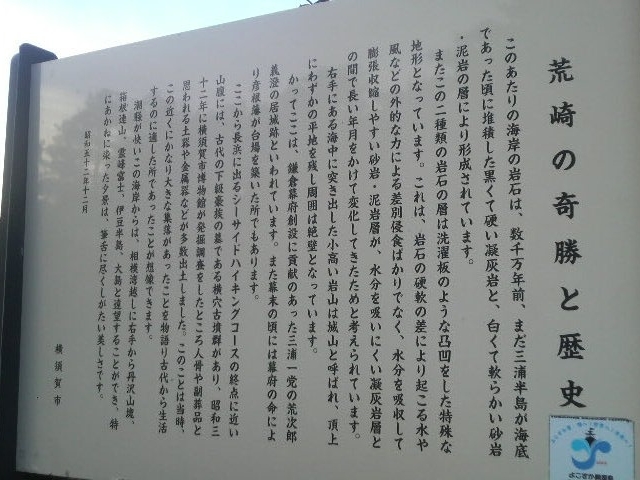 荒崎の奇勝と歴史
このあたりの海岸の岩石は、数千万年前、まだ三浦半島が海底
であった頃に堆積した黒くて硬い凝灰岩と、白くて軟らかい砂岩
・泥岩の層により形成されています。
またこの二種類の岩石の層は洗濯板のような凸凹をした特殊な
地形となっています。これは、岩石の硬軟の差により起こる水や
風などの外的な力による差別侵食ばかりでなく、水分を吸収して
膨張収縮しやすい砂岩・泥岩層が、水分を吸いにくい凝灰岩層と
の間で長い年月をかけて変化してきたためと考えられています。
右手にある海中に突き出した小高い岩山は城山と呼ばれ、頂上
にわずかの平地を残し周囲は絶壁となっています。
かってここは、鎌倉幕府創設に貢献のあった三浦一党の荒次郎
義澄の居城跡といわれています。また幕末の頃には幕府の命によ
り彦根藩が台場を築いた所でもあります。
ここから長浜に出るシーサイドハイキングコースの終点に近い
山腹には、古代の下級豪族の墓である横穴古墳群があり、昭和三
十二年に横須賀市博物館が発掘調査をしたところ人骨や副葬品と
思われる土器や金属器などが多数出土しました。このことは当時、
この近くにかなり大きな集落があったことを物語り古代から生活
するのに適した所であったことが想像できます。
潮騒が快いこの海岸からは、相模湾越しに右手から丹沢山塊、
箱根連山、霊峰富士、伊豆半島、大島と遠望することができ、特
にあかねに染った夕景は、筆舌に尽くしがたい美しさです。
昭和五十二年十二月
横須賀市